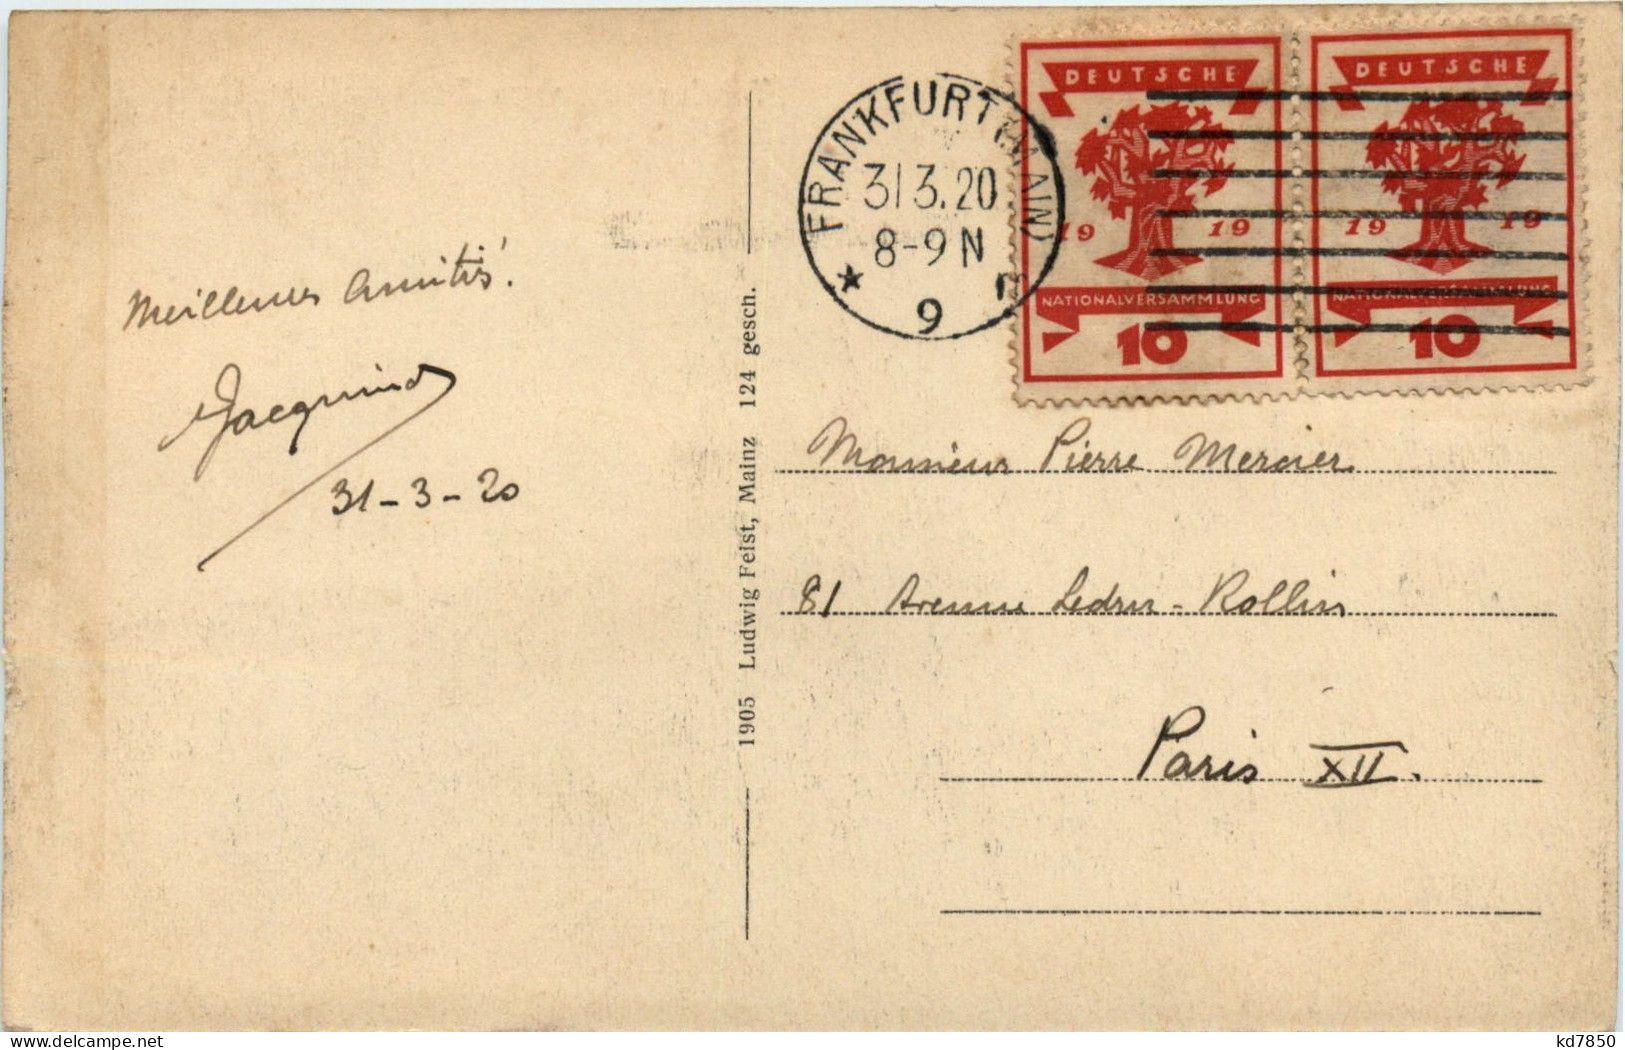 Meilleures Amitiés.
Jacquinod
31-3-20
1905 Ludwig Feist, Mainz 124 gesch.
FRANKFURT (MAIN)
31 3.20
8-9 N
* 9
DEUTSCHE
19 19
NATIONALVERSAMMLUNG
10
DEUTSCHE
19 19
NATIONALVERSAMMLUNG
10
Monsieur Pierre Mercier
81 Avenue Ledru-Rollin
Paris XII.
kd7850